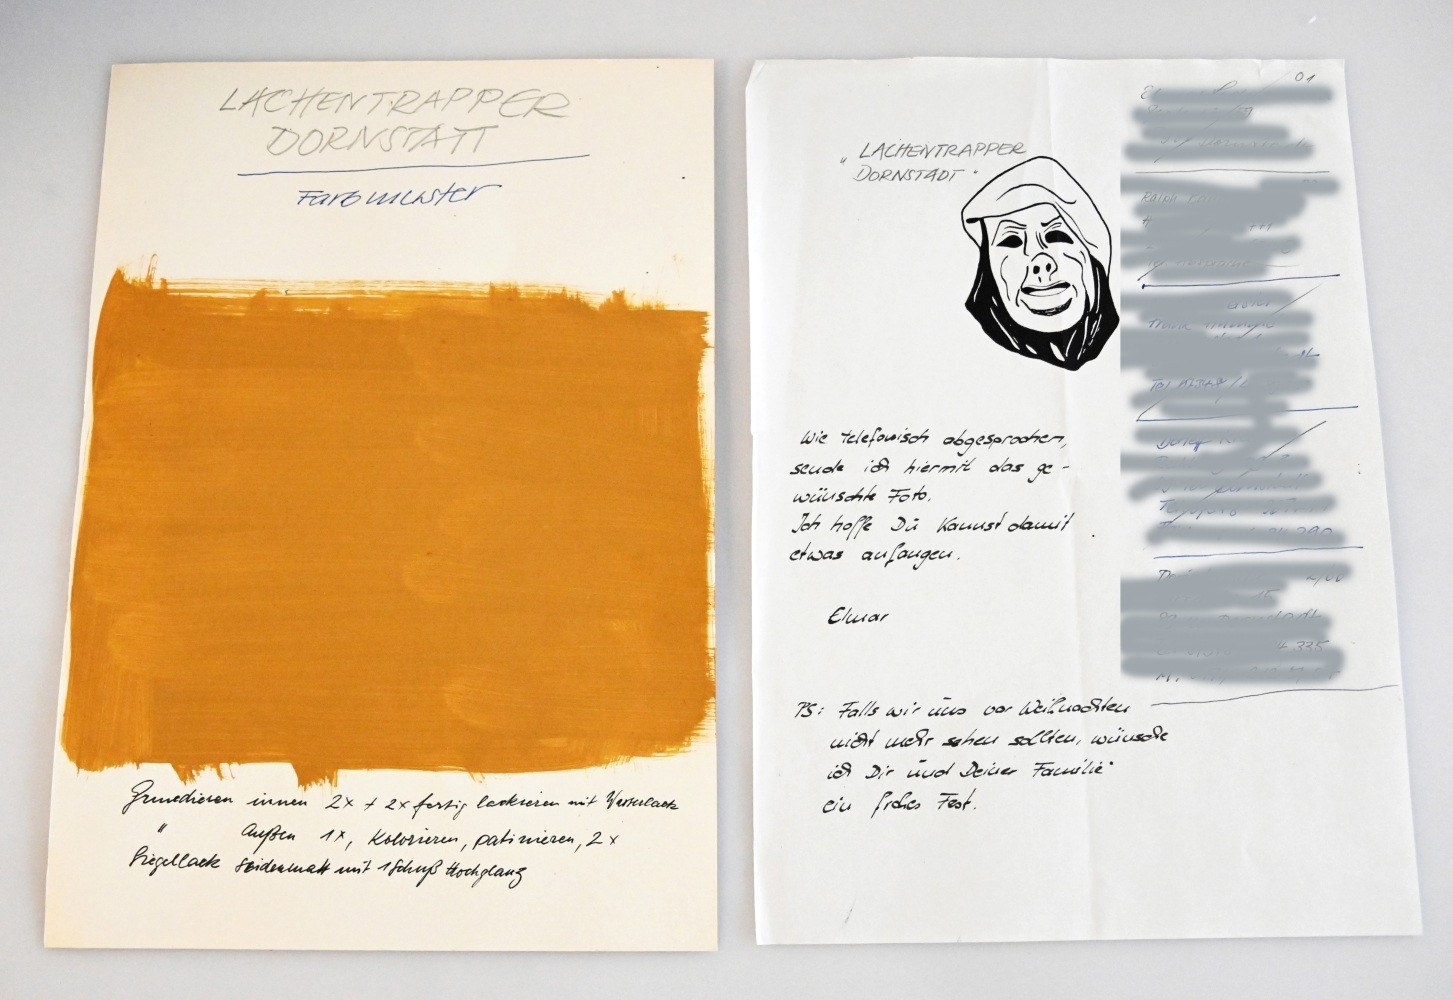 LACHENTRAPPER
DORNSTATT
Farbmuster
Grundieren innen 2x + 2x fertig lackieren mit Wasserlack
" Außen 1x, Kolorieren, patinieren, 2x
Siegellack Seidenmatt mit 1 Schuß Hochglanz
01
"LACHENTRAPPER
DORNSTADT"
Wie telefonisch abgesprochen,
sende ich hiermit das ge-
wünschte Foto.
Ich hoffe Du kannst damit
etwas anfangen.
Elmar
PS: Falls wir uns vor Weihnachten
nicht mehr sehen sollten, wünsche
ich Dir und Deiner Familie
ein frohes Fest.